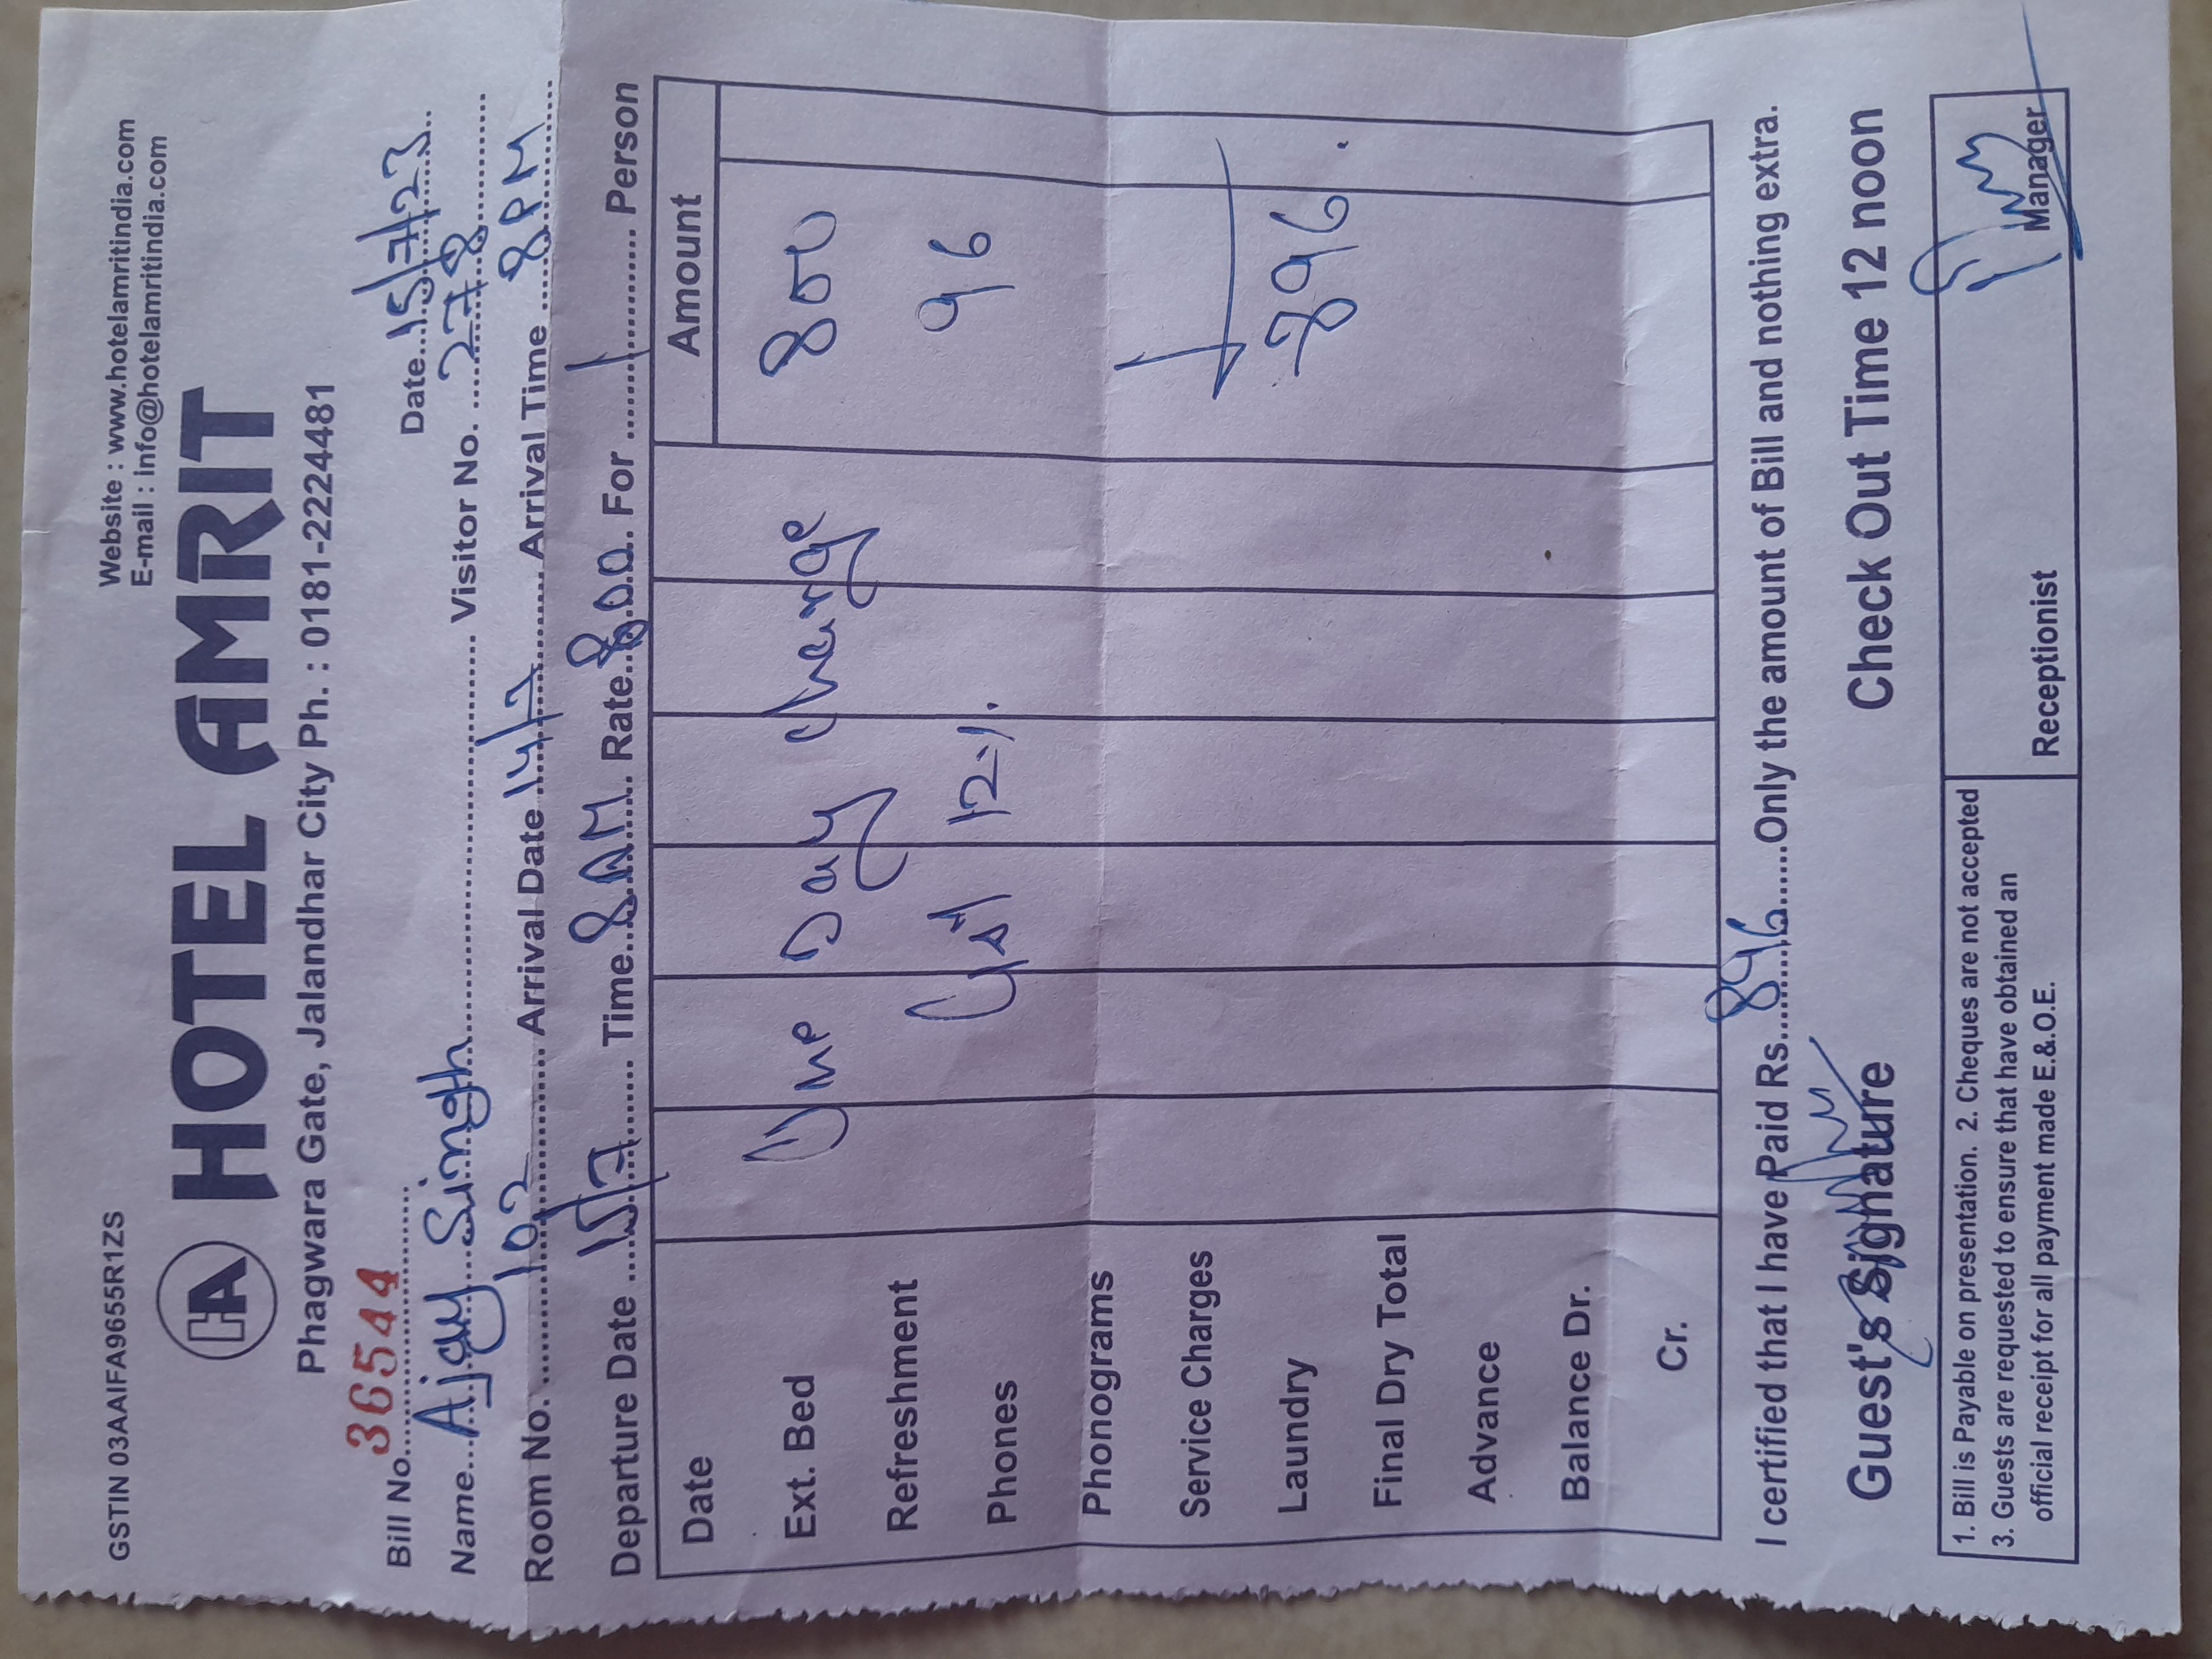 GSTIN 03AAIFA9655R1ZS
Website : www.hotelamritindia.com
E-mail : info@hotelamritindia.com
HA HOTEL AMRIT
Phagwara Gate, Jalandhar City Ph. : 0181-2224481
Bill No. 36544 Date 15/7/23
Name Ajay Singh Visitor No. 2778
Room No. 102 Arrival Date 14/7 Arrival Time 8 PM
Departure Date 15/7 Time 8 AM Rate 800 For 1 Person
Date Amount
Ext. Bed One Day charge 800
Refreshment Gst 12%. 96
Phones
Phonograms
Service Charges
Laundry 896
Final Dry Total
Advance
Balance Dr.
Cr.
I certified that I have Paid Rs. 896 Only the amount of Bill and nothing extra.
Guest's Signature Check Out Time 12 noon
1. Bill is Payable on presentation. 2. Cheques are not accepted
3. Guests are requested to ensure that have obtained an
official receipt for all payment made E.&.O.E.
Receptionist Manager